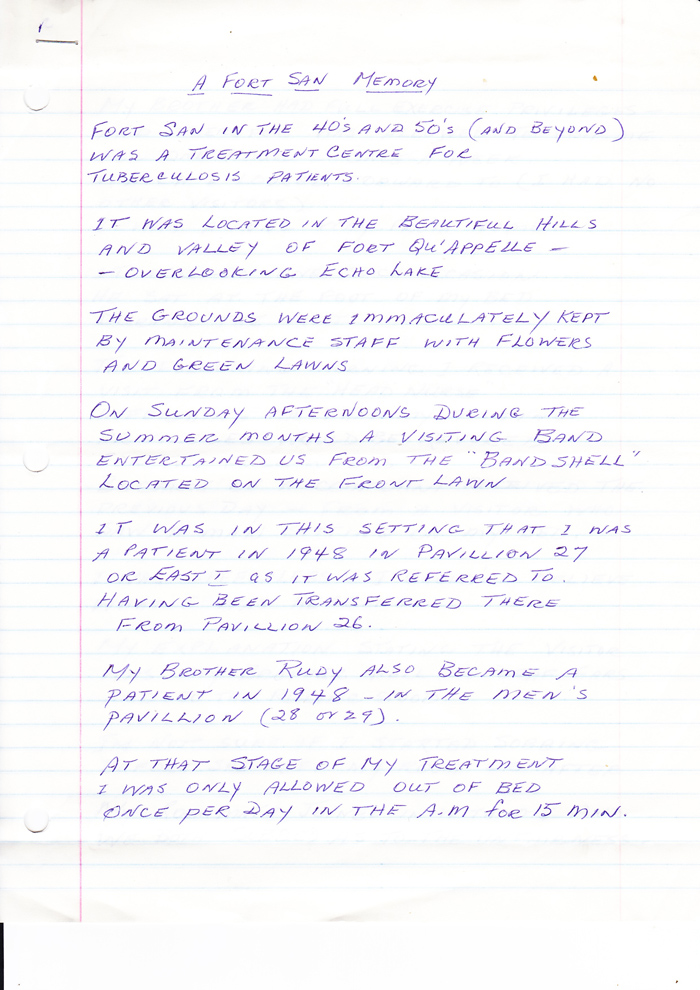 1
A FORT SAN MEMORY
FORT SAN IN THE 40'S AND 50'S (AND BEYOND)
WAS A TREATMENT CENTRE FOR
TUBERCULOSIS PATIENTS.
IT WAS LOCATED IN THE BEAUTIFUL HILLS
AND VALLEY OF FORT QU'APPELLE –
– OVERLOOKING ECHO LAKE
THE GROUNDS WERE IMMACULATELY KEPT
BY MAINTENANCE STAFF WITH FLOWERS
AND GREEN LAWNS
ON SUNDAY AFTERNOONS DURING THE
SUMMER MONTHS A VISITING BAND
ENTERTAINED US FROM THE "BANDSHELL"
LOCATED ON THE FRONT LAWN
IT WAS IN THIS SETTING THAT I WAS
A PATIENT IN 1948 IN PAVILLION 27
OR EAST I as IT WAS REFERRED TO.
HAVING BEEN TRANSFERRED THERE
FROM PAVILLION 26.
MY BROTHER RUDY ALSO BECAME A
PATIENT IN 1948 – IN THE MEN'S
PAVILLION (28 or 29).
AT THAT STAGE OF MY TREATMENT
I WAS ONLY ALLOWED OUT OF BED
ONCE PER DAY IN THE A.M for 15 MIN.